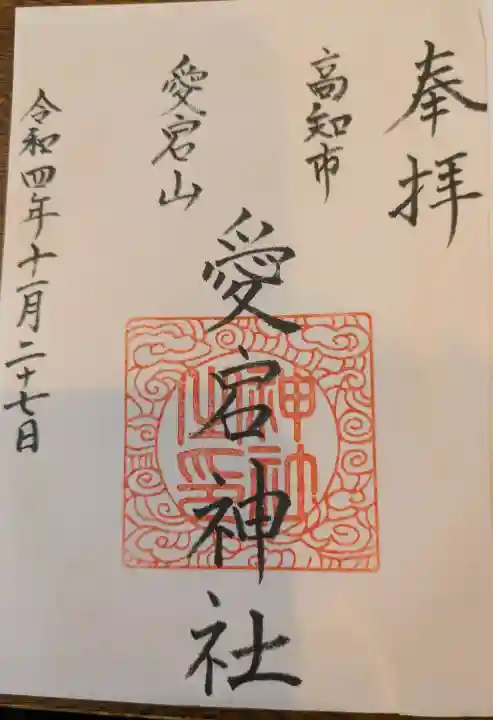 奉拝
高知市
愛宕山
愛宕神社
神社之印
令和四年十一月二十七日